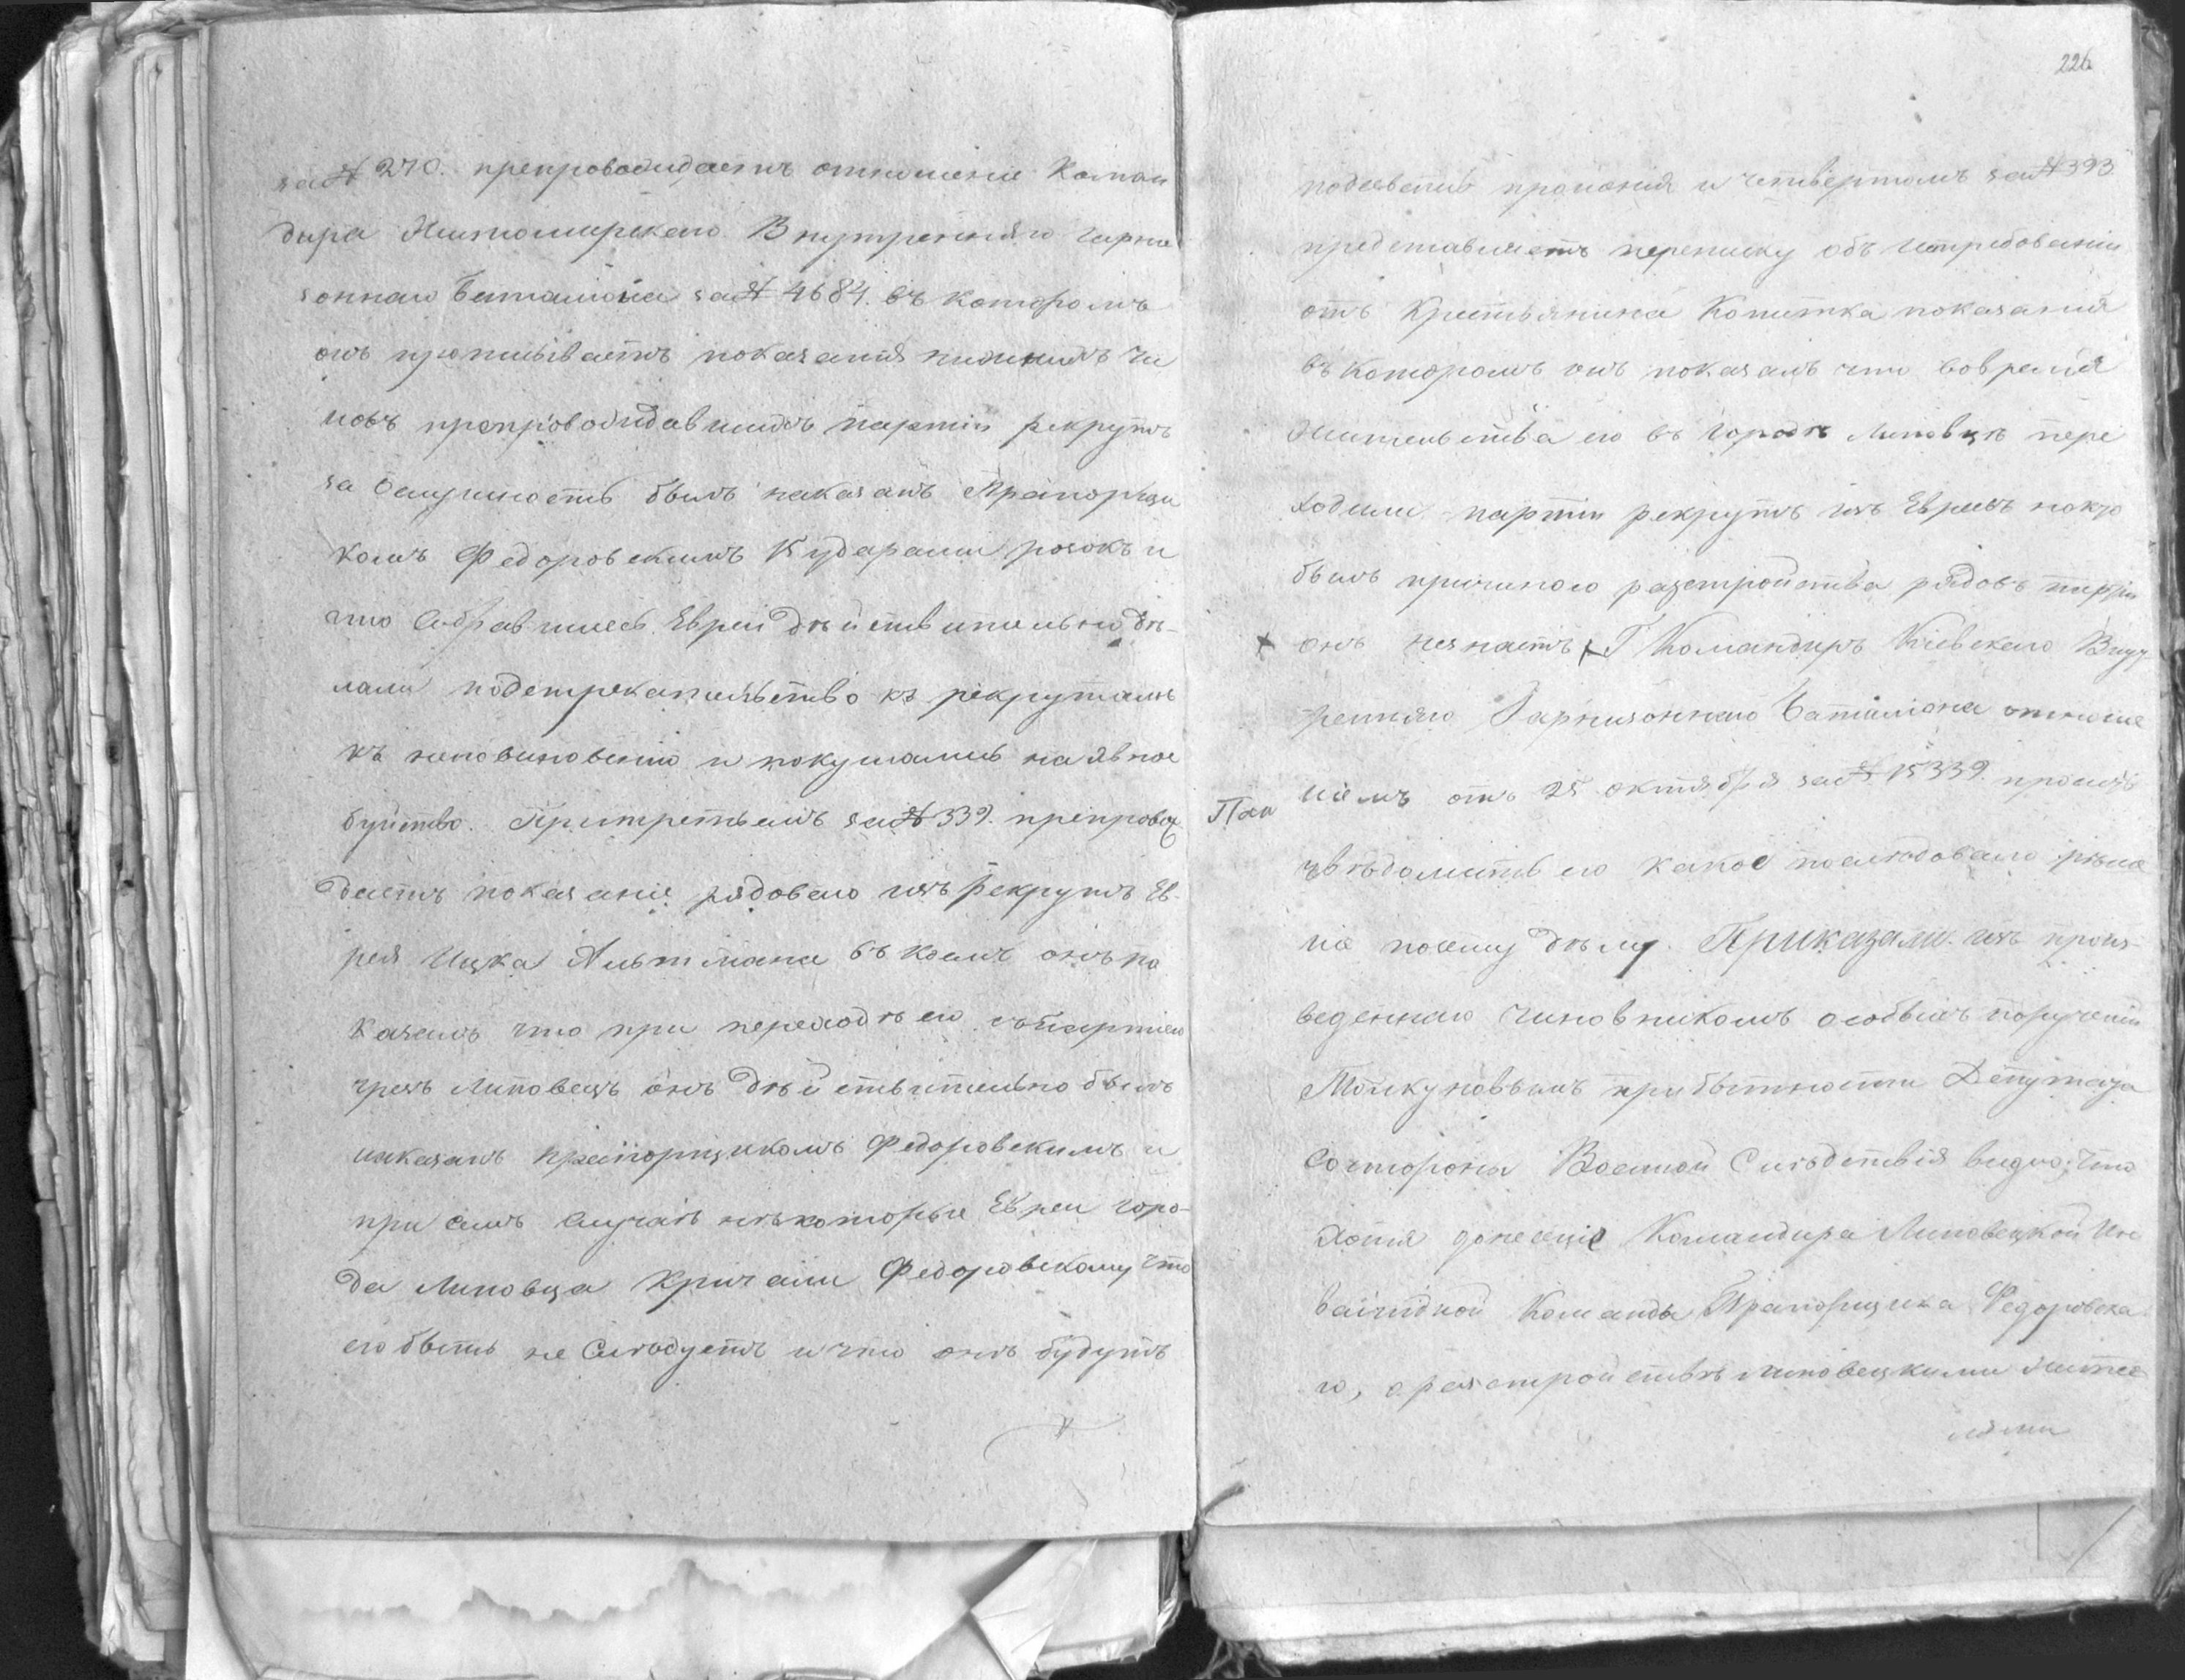 за № 270. препровождаетъ отношеніе Коман
дира Житомирскаго Внутренняго гарни
зоннаго Баталіона за № 4684. въ которомъ
онъ прописываетъ показанія нижнихъ чи
новъ препровождавшихъ партіи рекрутъ
за былъ наказанъ Прапорщи
комъ Федоровскимъ 15 ударами розокъ и
что Собравшіесь Евреи дѣйствительно дѣ-
лали подстрекательство къ рекрутамъ
къ неповиновенію и покушались на явное
буйство. При третьемъ за № 339. препровож
даетъ показаніе рядоваго изъ рекрутъ Ев-
рея Ицка Альтмана въ коемъ онъ по
казалъ что при переходѣ его съ партіею
чрезъ Липовецъ онъ дѣйствительно былъ
наказанъ прапорщикомъ Федоровскимъ и
при семъ случаѣ нѣкоторые Евреи горо-
да Липовца кричали Федоровскому что
его бить не Слѣдуетъ и что онъ будутъ
226
и четвертомъ за № 393
представляетъ переписку объ истребованіи
отъ Крестьянина Копытка показанія
въ которомъ онъ показалъ что вовремя
Жительства его въ городѣ Липовцѣ пере
ходили партіи рекрутъ изъ Евреевъ но кто
былъ причиною разстройства рядовъ партіи
× онъ незнаетъ × Г Командиръ Кіевскаго Внут-
ренняго Гарнизоннаго Баталіона отноше
ніемъ отъ 25 октября за № 15339. проситъ
увѣдомить его какое послѣдовало рѣше
ніе посему дѣлу. Приказали: изъ произ-
веденнаго Чиновникомъ особыхъ порученій
прибытности Депутата
Состороны Военной Слѣдствія видно; что
Хотя донесеніе Командира Липовецкой Ин
валидной Команды Прапорщика Федоровска
го, о разстройствѣ Липовецкими Жите
лями